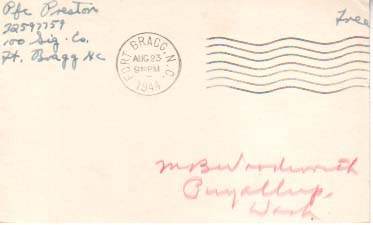 Pfc Preston
Free
32597759
100 Sig. Co.
Ft. Bragg NC
FORT BRAGG, N.C.
AUG 23
PM
1944
Woodworth
Puyallup,
Wash